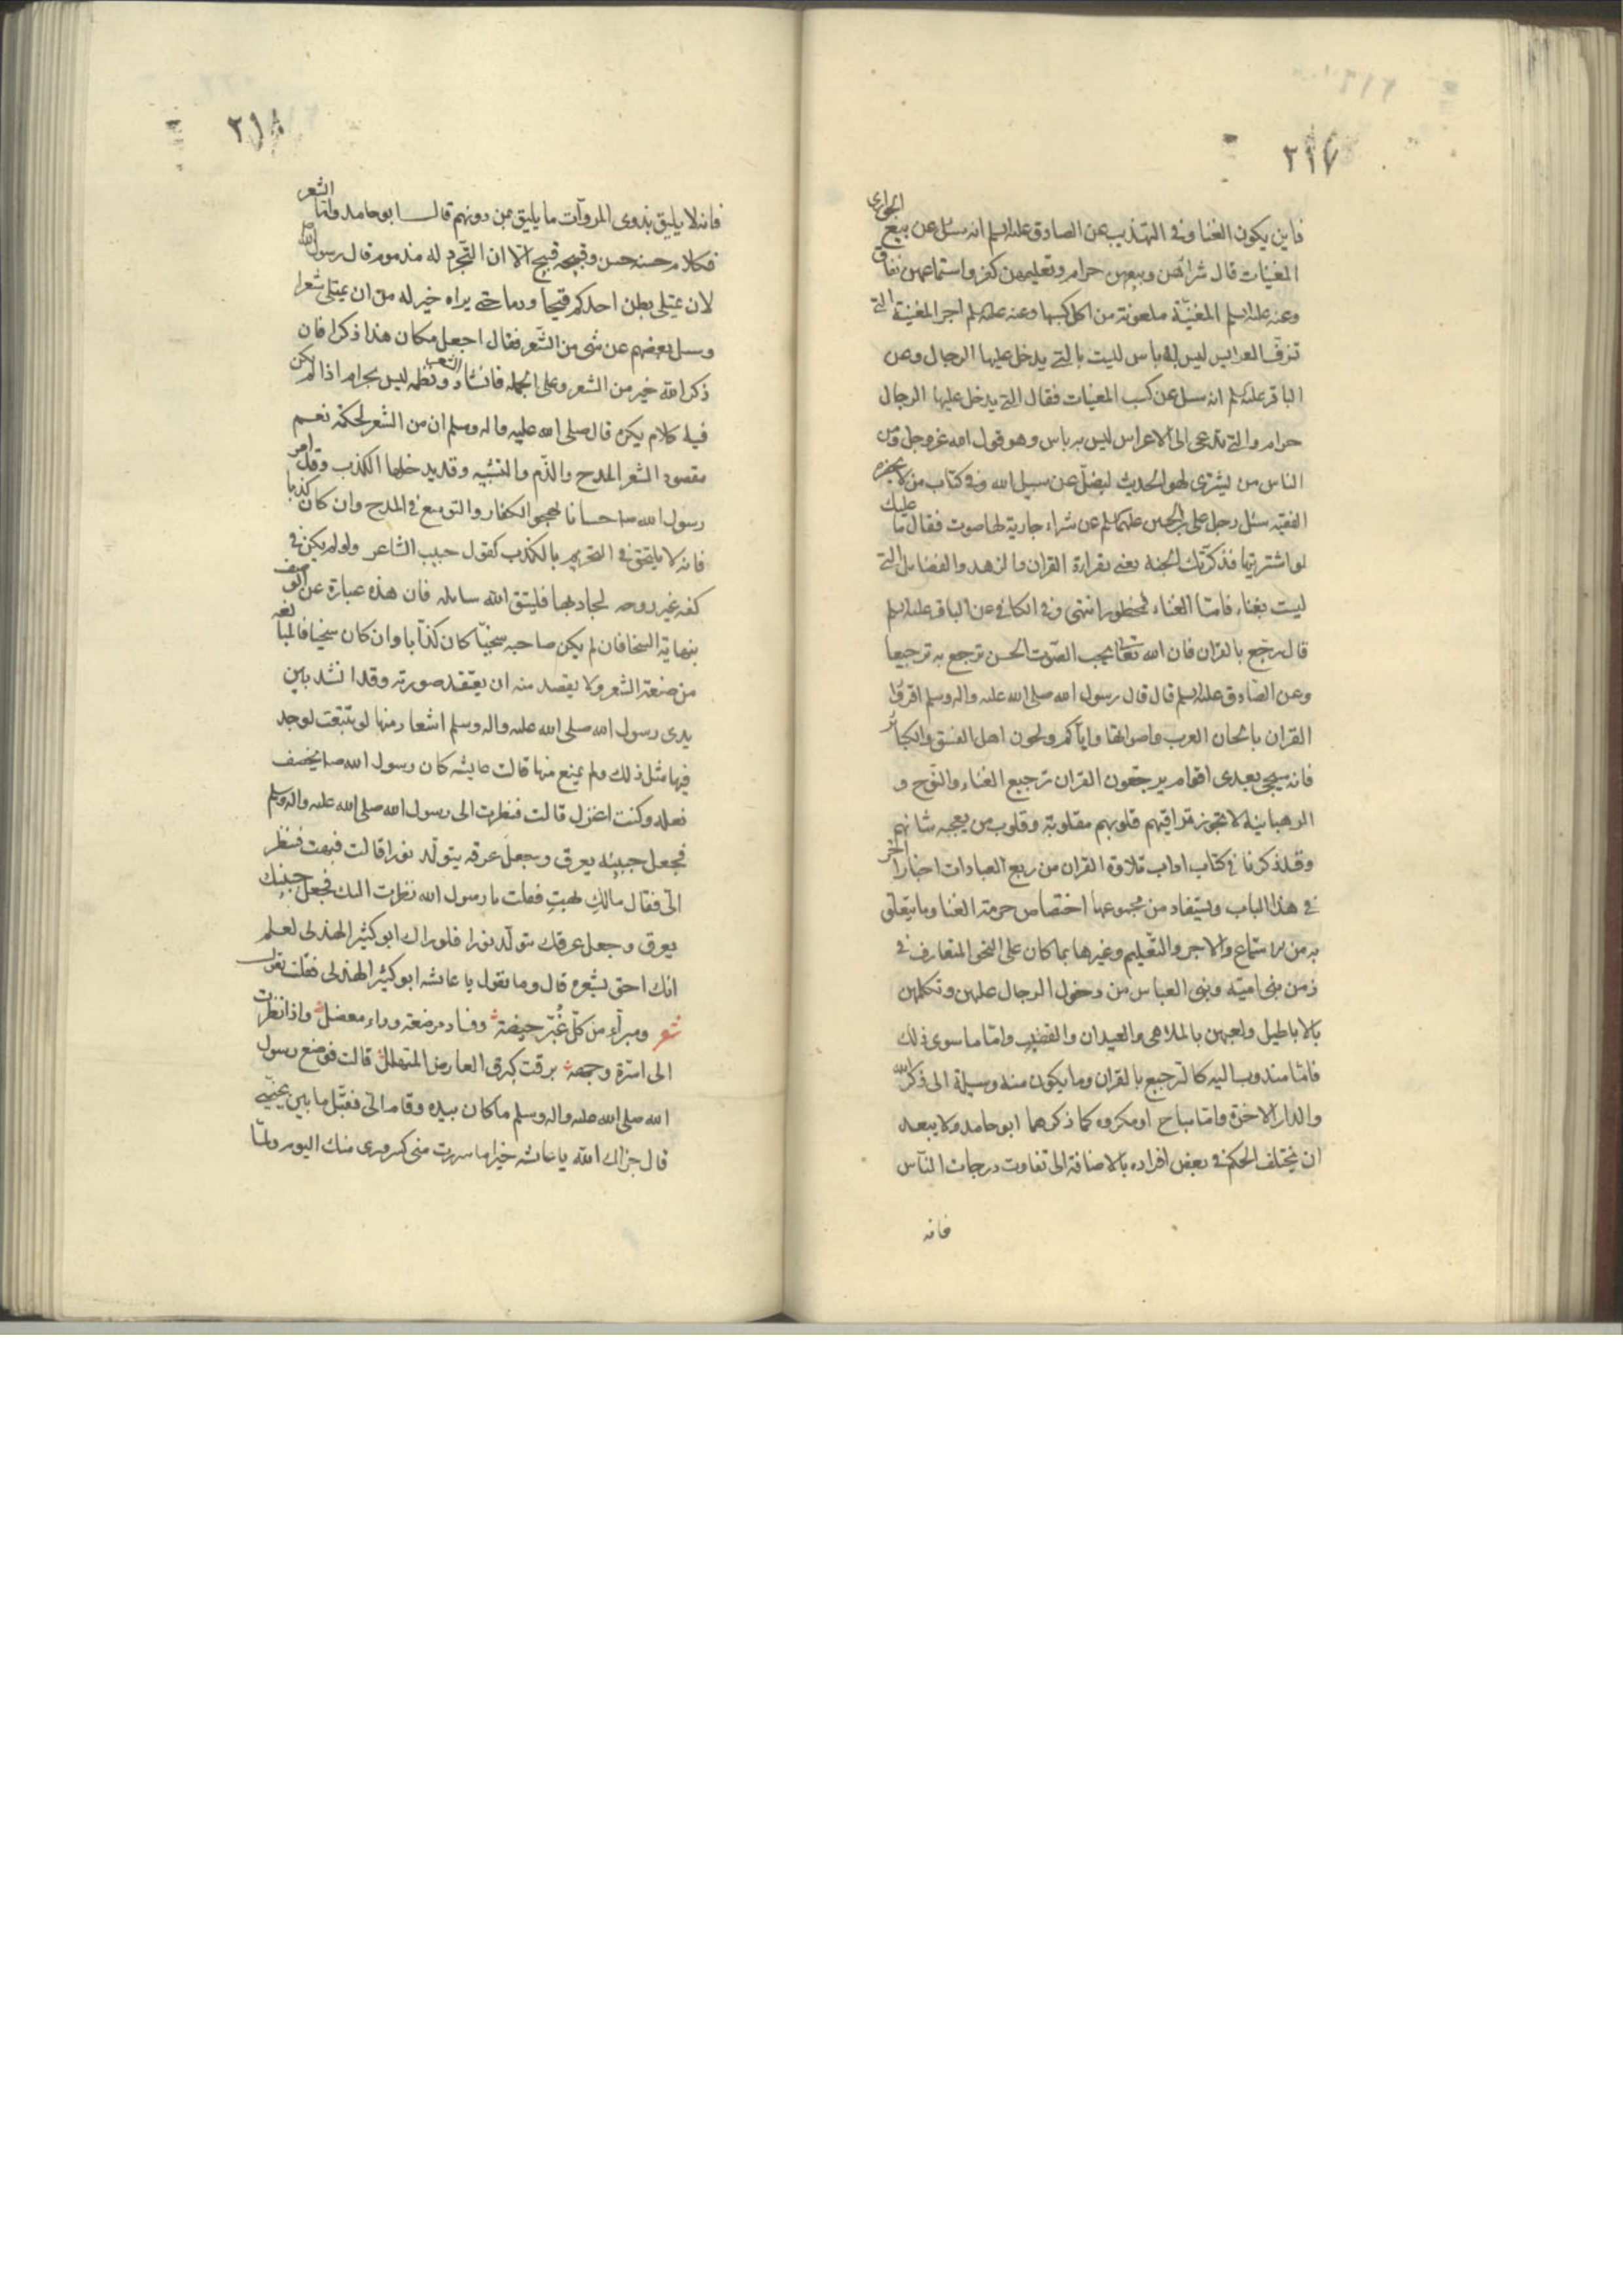 ٢١٧
فاين يكون الغنا وفى التهذيب عن الصادق عليه السلم انه سئل عن بيع الجوارى
المغنيات قال شرائهن وبيعهن حرام وتعليمهن كفر واستماعهن نفاق
وعنه عليه السلم المغنيّة ملعونة من اكل كسبها وعنه عليه السلم اجر المغنية التى
تزفّ العرايس ليس به باس ليست بالتى يدخل عليها الرجال وعن
الباقر عليه السلم انه سئل عن كسب المغنيات فقال التى يدخل عليها الرجال
حرام والتى تدعى الى الاعراس ليس به باس وهو قول الله عز وجل ومن
الناس من يشترى لهو الحديث ليضلّ عن سبيل الله وفى كتاب من لا يحضره
الفقيه سئل رجل على بن الحسين عليهما السلم عن شراء جارية لها صوت فقال ما عليك
لو اشتريتها فذكرتك الجنة يعنى بقراءة القران والزهد والفضايل التى
ليست بغناء فامّا الغناء فمحظور انتهى وفى الكافى عن الباقر عليه السلم
قال رجّع بالقران فان الله تعالى يحب الصّوت الحسن ترجع به ترجيعا
وعن الصّادق عليه السلم قال قال رسول الله صلى الله عليه واله وسلم اقرؤا
القران بالحان العرب واصواتها واياكم ولحون اهل الفسق والكبائر
فانه سيجئ بعدى اقوام يرجّعون القران ترجيع الغناء والنّوح و
الرهبانية لا تجوز تراقيهم قلوبهم مقلوبة وقلوب من يعجبه شانهم
وقد ذكرنا فى كتاب اداب تلاوة القران من ربع العبادات اخبارا اخر
فى هذا الباب ويستفاد من مجموعها اختصاص حرمة الغنا وما يتعلق
به من الاستماع والاجر والتّعليم وغيرها بما كان على النحو المتعارف فى
زمن بنى اميّه وبنى العباس من دخول الرجال عليهن وتكلمهن
بالاباطيل ولعبهن بالملاهى والعيدان والقضيب وامّا ما سوى ذلك
فامّا مندوب اليه كالترجيع بالقران وما يكون منه وسيلة الى ذكر الله
والدار الاخرة وامّا مباح او مكروه كما ذكرهما ابو حامد ولا يبعد
ان يختلف الحكم فى بعض افراده بالاضافة الى تفاوت درجات النّاس
فانه
٢١٨
فانه لا يليق بذوى المروآت ما يليق بمن دونهم قال ابو حامد وامّا الشعر
فكلام حسنه حسن وقبيحه قبيح الّا ان التّجرّد له مذموم قال رسول الله ص
لان يمتلى بطن احدكم قيحا ودما حتى يراه خير له من ان يمتلى شعرا
وسئل بعضهم عن شئ من الشّعر فقال اجعل مكان هذا ذكرا فان
ذكر الله خير من الشعر وعلى الجمله فانشاد الشعر ونظمه ليس بحرام اذا لم يكن
فيه كلام يكره قال صلى الله عليه واله وسلم ان من الشعر لحكمة نعم
مقصود الشعر المدح والذّم والتشبيه وقد يدخلها الكذب وقد امر
رسول الله ص حسانا لهجو الكفار والتوسع فى المدح وان كان كذبا
فانه لا يلتحق فى التحريم بالكذب كقول حبيب الشاعر ولو لم يكن فى
كفه غير روحه لجاد بها فليتق الله سايله فان هذه عبارة عن الوصف
بنهاية السخا فان لم يكن صاحبه سخيّا كان كذّابا وان كان سخيا فالمبالغة
من صنعة الشعر ولا يقصد منه ان يعتقد صورته وقد انشد بين
يدى رسول الله صلى الله عليه واله وسلم اشعار منها لو تتبعت لوجد
فيها مثل ذلك ولم يمنع منها قالت عايشه كان رسول الله ص يخصف
نعله وكنت اغزل قالت فنظرت الى رسول الله صلى الله عليه واله وسلم
فجعل جبينه يعرق وجعل عرقه يتولّد نورا قالت فبهت فنظر
الىّ فقال مالكِ بهتِ فقلت يا رسول الله نظرت اليك فجعل جبينك
يعرق وجعل عرقك يتولّد نورا فلو راك ابو كثير الهذلى لعلم
انك احق بشعره قال وما يقول يا عايشه ابو كثير الهذلى فقلت يقول
شعر ومبراء من كلّ غُبّر حيضة وفساد مرضعة وداء معضل واذا نظرت
الى اسرّة وجهه برقت كبرق العارض المتهلل قالت فوضع رسول
الله صلى الله عليه واله وسلم ما كان بيده وقام الىّ فقبّل ما بين عينىّ
قال جزاك الله يا عايشه خيرا ما سررت منى كسرورى منك اليوم ولمّا